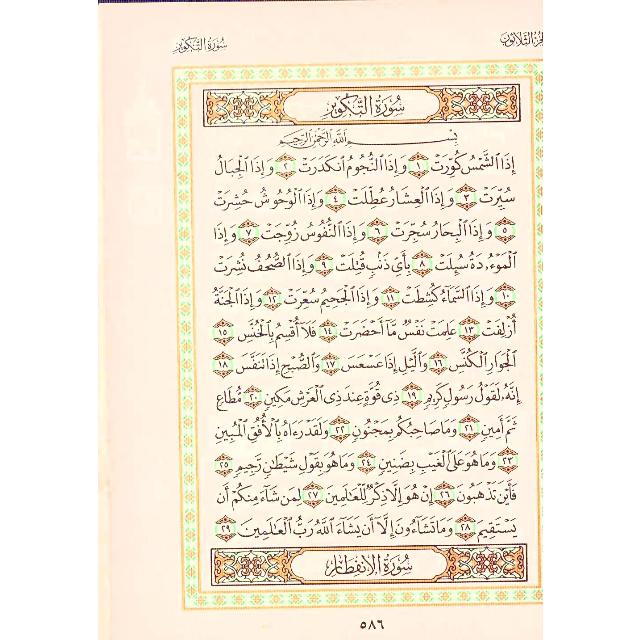 سُورَةُ التَّكْوِيرِ
الجُزءُ الثَّلَاثُونَ
سُورَةُ التَّكْوِيرِ
بِسْمِ اللَّهِ الرَّحْمَٰنِ الرَّحِيمِ
إِذَا الشَّمْسُ كُوِّرَتْ ١ وَإِذَا النُّجُومُ انكَدَرَتْ ٢ وَإِذَا الْجِبَالُ
سُيِّرَتْ ٣ وَإِذَا الْعِشَارُ عُطِّلَتْ ٤ وَإِذَا الْوُحُوشُ حُشِرَتْ
٥ وَإِذَا الْبِحَارُ سُجِّرَتْ ٦ وَإِذَا النُّفُوسُ زُوِّجَتْ ٧ وَإِذَا
الْمَوْءُۥدَةُ سُئِلَتْ ٨ بِأَيِّ ذَنۢبٍ قُتِلَتْ ٩ وَإِذَا الصُّحُفُ نُشِرَتْ
١٠ وَإِذَا السَّمَاءُ كُشِطَتْ ١١ وَإِذَا الْجَحِيمُ سُعِّرَتْ ١٢ وَإِذَا الْجَنَّةُ
أُزْلِفَتْ ١٣ عَلِمَتْ نَفْسٌ مَّا أَحْضَرَتْ ١٤ فَلَا أُقْسِمُ بِالْخُنَّسِ ١٥
الْجَوَارِ الْكُنَّسِ ١٦ وَاللَّيْلِ إِذَا عَسْعَسَ ١٧ وَالصُّبْحِ إِذَا تَنَفَّسَ ١٨
إِنَّهُۥ لَقَوْلُ رَسُولٍ كَرِيمٍ ١٩ ذِي قُوَّةٍ عِندَ ذِي الْعَرْشِ مَكِينٍ ٢٠ مُّطَاعٍ
ثَمَّ أَمِينٍ ٢١ وَمَا صَاحِبُكُم بِمَجْنُونٍ ٢٢ وَلَقَدْ رَءَاهُ بِالْأُفُقِ الْمُبِينِ
٢٣ وَمَا هُوَ عَلَى الْغَيْبِ بِضَنِينٍ ٢٤ وَمَا هُوَ بِقَوْلِ شَيْطَٰنٍ رَّجِيمٍ ٢٥
فَأَيْنَ تَذْهَبُونَ ٢٦ إِنْ هُوَ إِلَّا ذِكْرٌ لِّلْعَالَمِينَ ٢٧ لِمَن شَاءَ مِنكُمْ أَن
يَسْتَقِيمَ ٢٨ وَمَا تَشَاءُونَ إِلَّا أَن يَشَاءَ اللَّهُ رَبُّ الْعَالَمِينَ ٢٩
سُورَةُ الِانفِطَارِ
٥٨٦